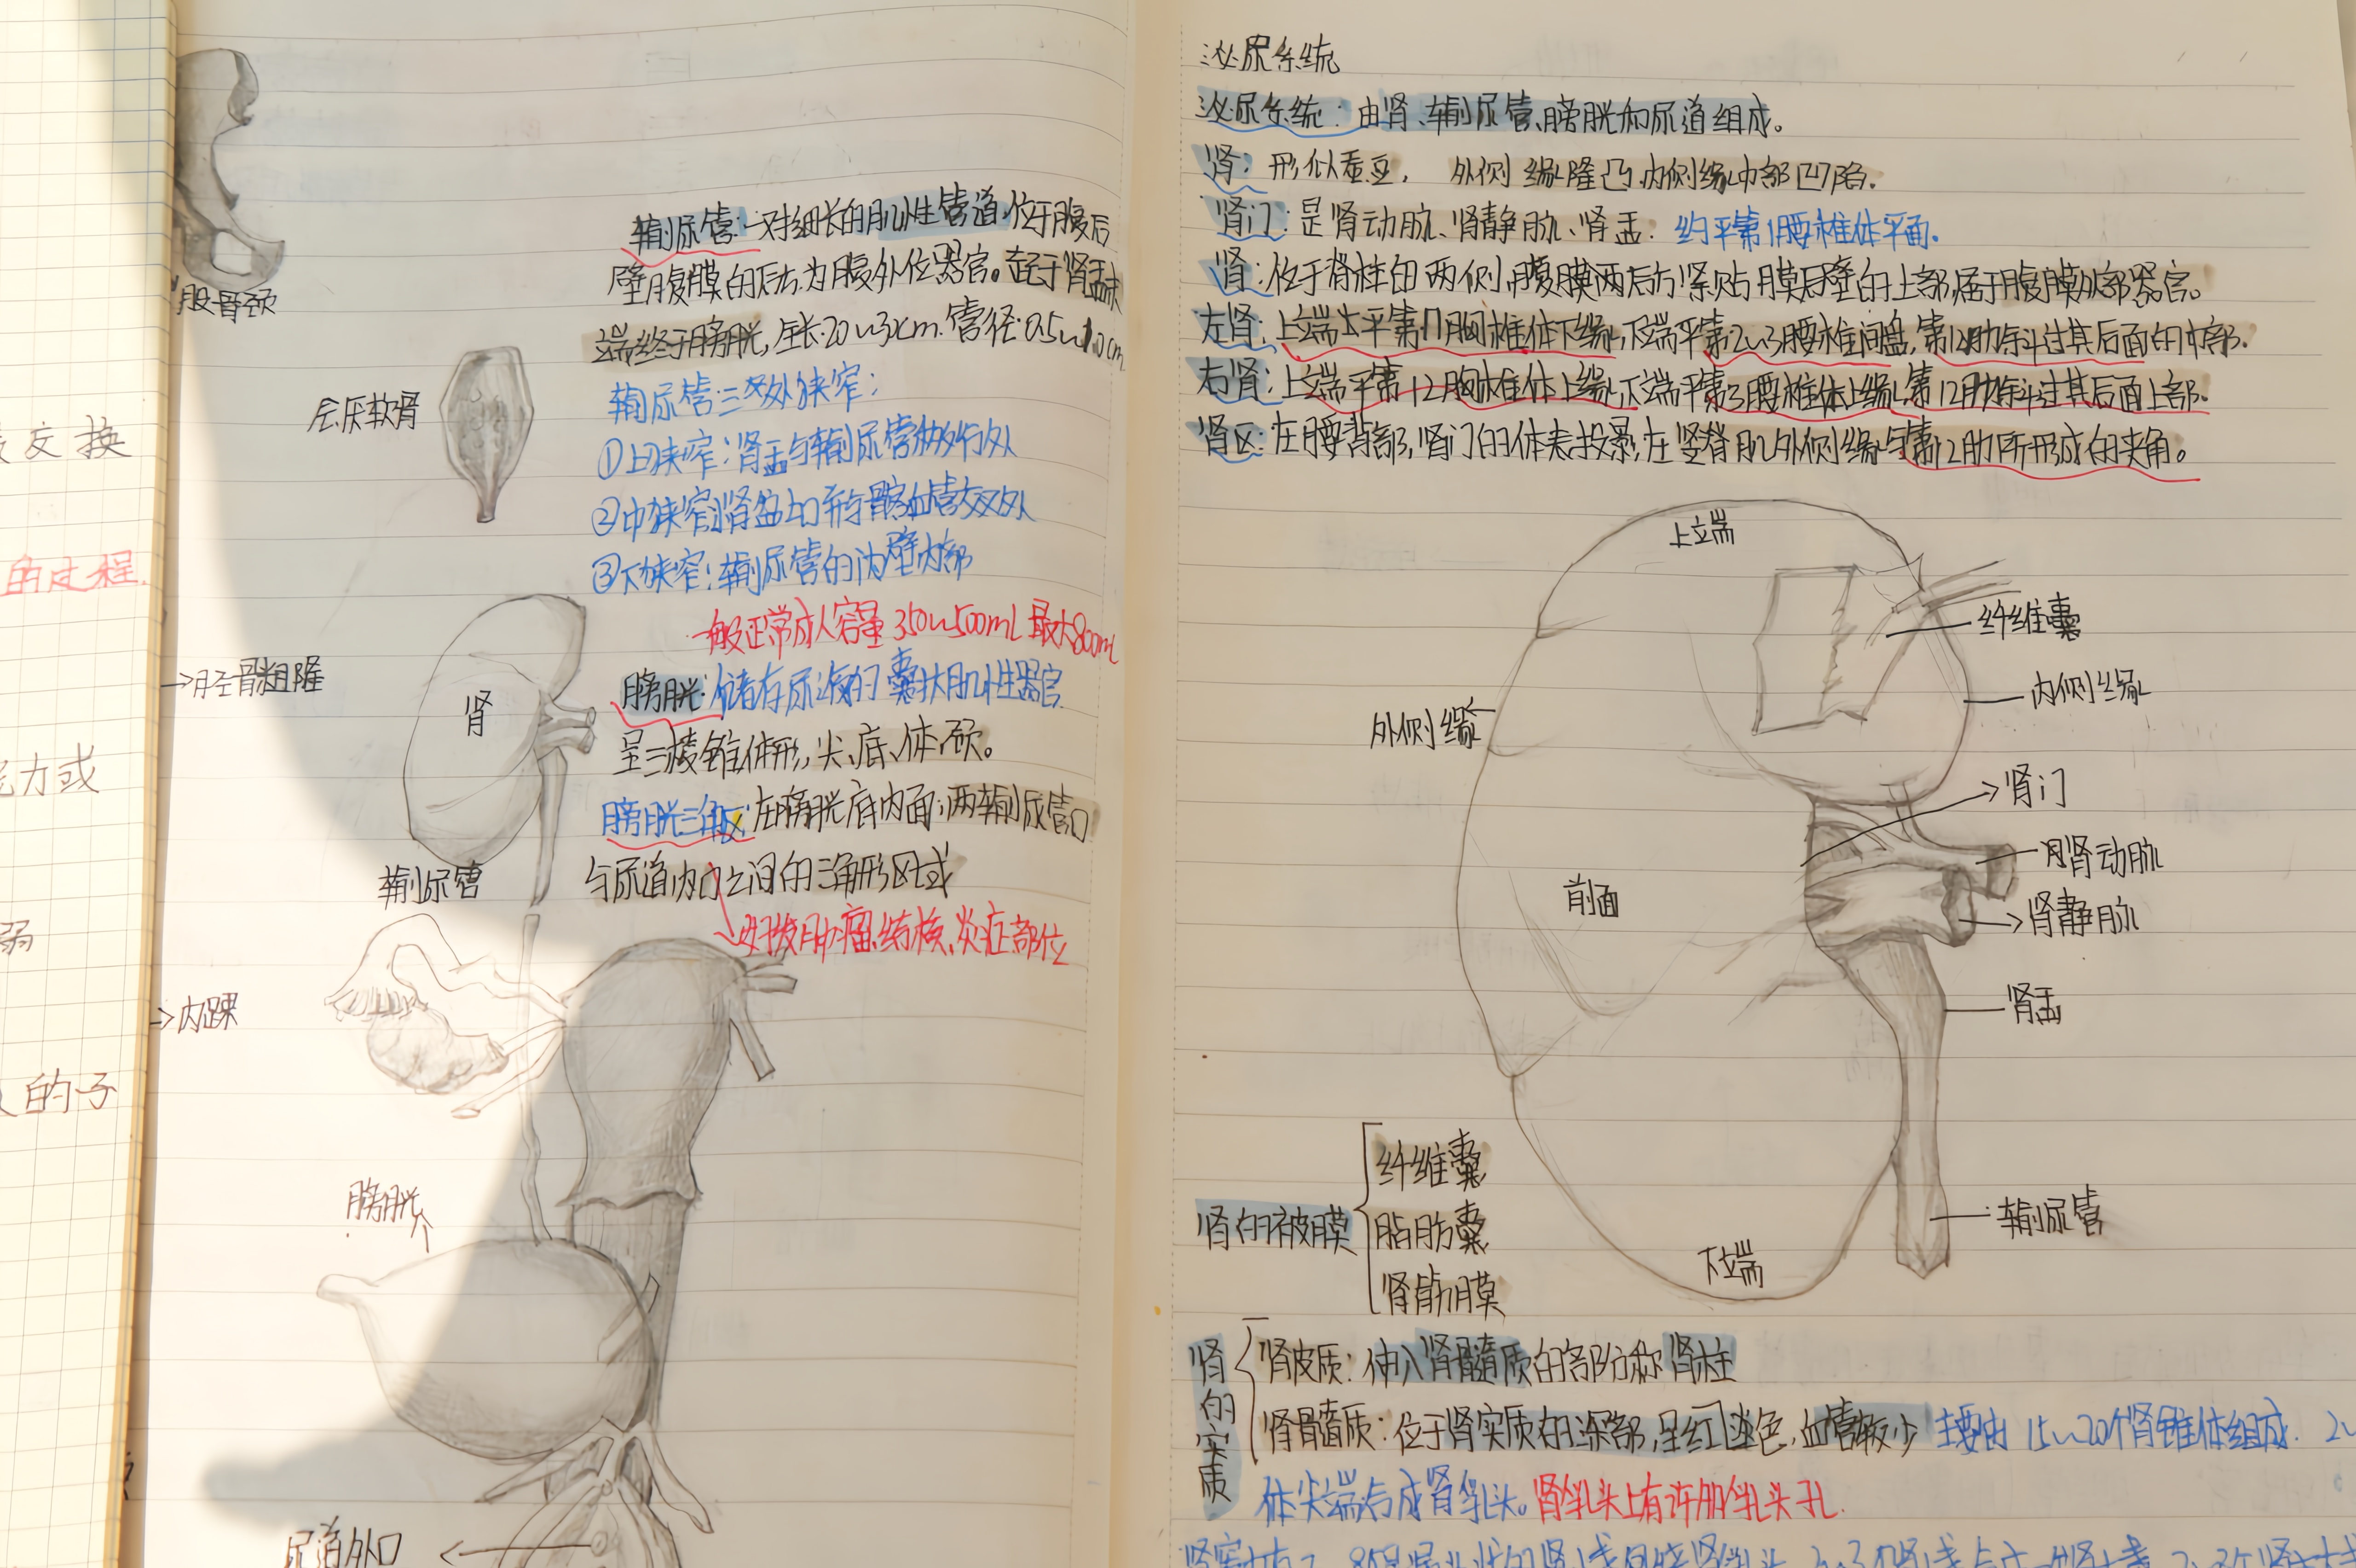 交换
的过程.
力或
弱
的子
股骨颈
会厌软骨
→胫骨粗隆
→内踝
肾
输尿管
膀胱
尿道外口
输尿管:一对细长的肌性管道,位于腹后
壁腹膜的后方.为腹外位器官。起于肾盂末
端终于膀胱,全长20~30cm.管径:0.5~1.0cm
输尿管三处狭窄:
①上狭窄:肾盂与输尿管移行处
②中狭窄:
③下狭窄:输尿管的内壁内部
一般正常成人容量350~500mL最大800mL
膀胱:储存尿液的囊状肌性器官
呈三棱锥体形,尖、底、体、颈。
膀胱三角区:在膀胱底内面;两输尿管口
与尿道内口之间的三角形区域
好发肿瘤.结核、炎症部位
泌尿系统
泌尿系统:由肾、输尿管、膀胱和尿道组成。
肾:形似蚕豆, 外侧缘隆凸,内侧缘中部凹陷.
肾门:是肾动脉、肾静脉、肾盂: 约平第1腰椎体平面.
肾:位于脊柱的两侧,腹膜两后方,紧贴腹后壁的上部,属于腹膜外部器官。
左肾:上端平第11胸椎体下缘,下端平第2~3腰椎间盘,第12肋斜过其后面的中部.
右肾:上端平第12胸椎体上缘,下端平第3腰椎体上缘,第12肋斜过其后面上部.
肾区:在腰背部,肾门的体表投影,在竖脊肌外侧缘与第12肋所形成的夹角。
上端
纤维囊
内侧缘
外侧缘
肾门
肾动脉
前面
肾静脉
肾盂
输尿管
下端
肾的被膜
纤维囊
脂肪囊
肾筋膜
肾的实质
肾皮质:伸入肾髓质的部分称肾柱
肾髓质:位于肾实质的深部,呈红淡色,血管较少 主要由15~20个肾锥体组成.
体尖端合成肾乳头。肾乳头上有许多乳头孔.